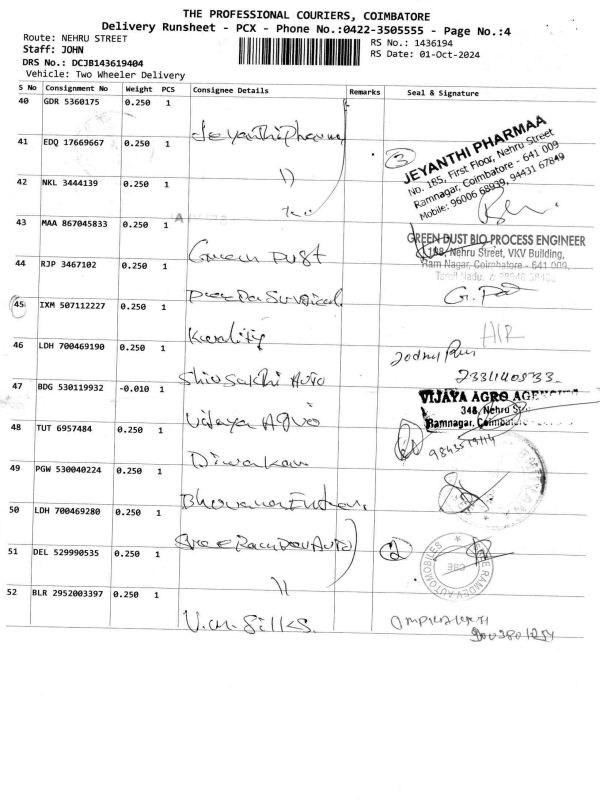 THE PROFESSIONAL COURIERS, COIMBATORE
Delivery Runsheet - PCX - Phone No.:0422-3505555 - Page No.:4
Route: NEHRU STREET
RS No.: 1436194
Staff: JOHN
RS Date: 01-Oct-2024
DRS No.: DCJB143619404
Vehicle: Two Wheeler Delivery
S No Consignment No Weight PCS Consignee Details Remarks Seal & Signature
40 GDR 5360175 0.250 1 Jeyanthi Pharma
41 EDQ 17669667 0.250 1 11
3
JEYANTHI PHARMAA
No. 185, First Floor, Nehru Street
Ramnagar, Coimbatore - 641 009
Mobile: 96006 68939, 94431 67849
42 NKL 3444139 0.250 1
43 MAA 867045833 0.250 1 Green Dust
GREEN DUST BIO PROCESS ENGINEER
198, Nehru Street, VKV Building,
Ram Nagar, Coimbatore - 641 009,
44 RJP 3467102 0.250 1 Surgical
45 IXM 507112227 0.250 1 Kwality
46 LDH 700469190 0.250 1 Shiv Sakthi Auto
47 BDG 530119932 -0.010 1 Vijaya Agro
VIJAYA AGRO AGENCIES
348, Nehru St.
Ramnagar, Coimbatore
48 TUT 6957484 0.250 1 Diwakar
49 PGW 530040224 0.250 1
50 LDH 700469280 0.250 1 Sree Ramdev Auto
51 DEL 529990535 0.250 1 11
2
RAMDEV AUTOMOBILES
CBE
52 BLR 2952003397 0.250 1 V.M. Silks.